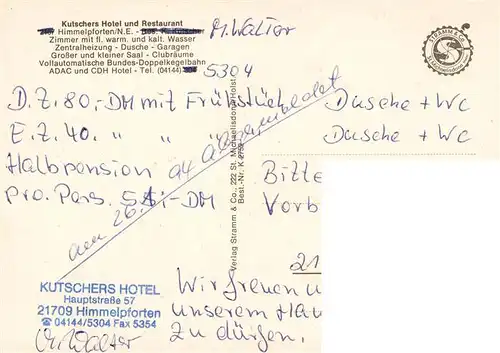 Kutschers Hotel und Restaurant
M. Walter
Himmelpforten/N.E. -
Zimmer mit fl. warm. und kalt. Wasser
Zentralheizung - Dusche - Garagen
Großer und kleiner Saal - Clubräume
Vollautomatische Bundes-Doppelkegelbahn
ADAC und CDH Hotel - Tel. (04144)
5304
STRAMM & Co.
D.Z. 80,-DM mit Frühstück Dusche + WC
E.Z. 40. " " " Dusche + WC
Halbpension
pro Pers. DM
am 26.
Verlag Stramm & Co., 222 St. Michaelisdonn/Holst.
Best.-Nr. K
Bitte
Vorb
21
KUTSCHERS HOTEL
Hauptstraße 57
21709 Himmelpforten
☎ 04144/5304 Fax 5354
Wir freuen u
unserem Hau
zu dürfen.
Walter